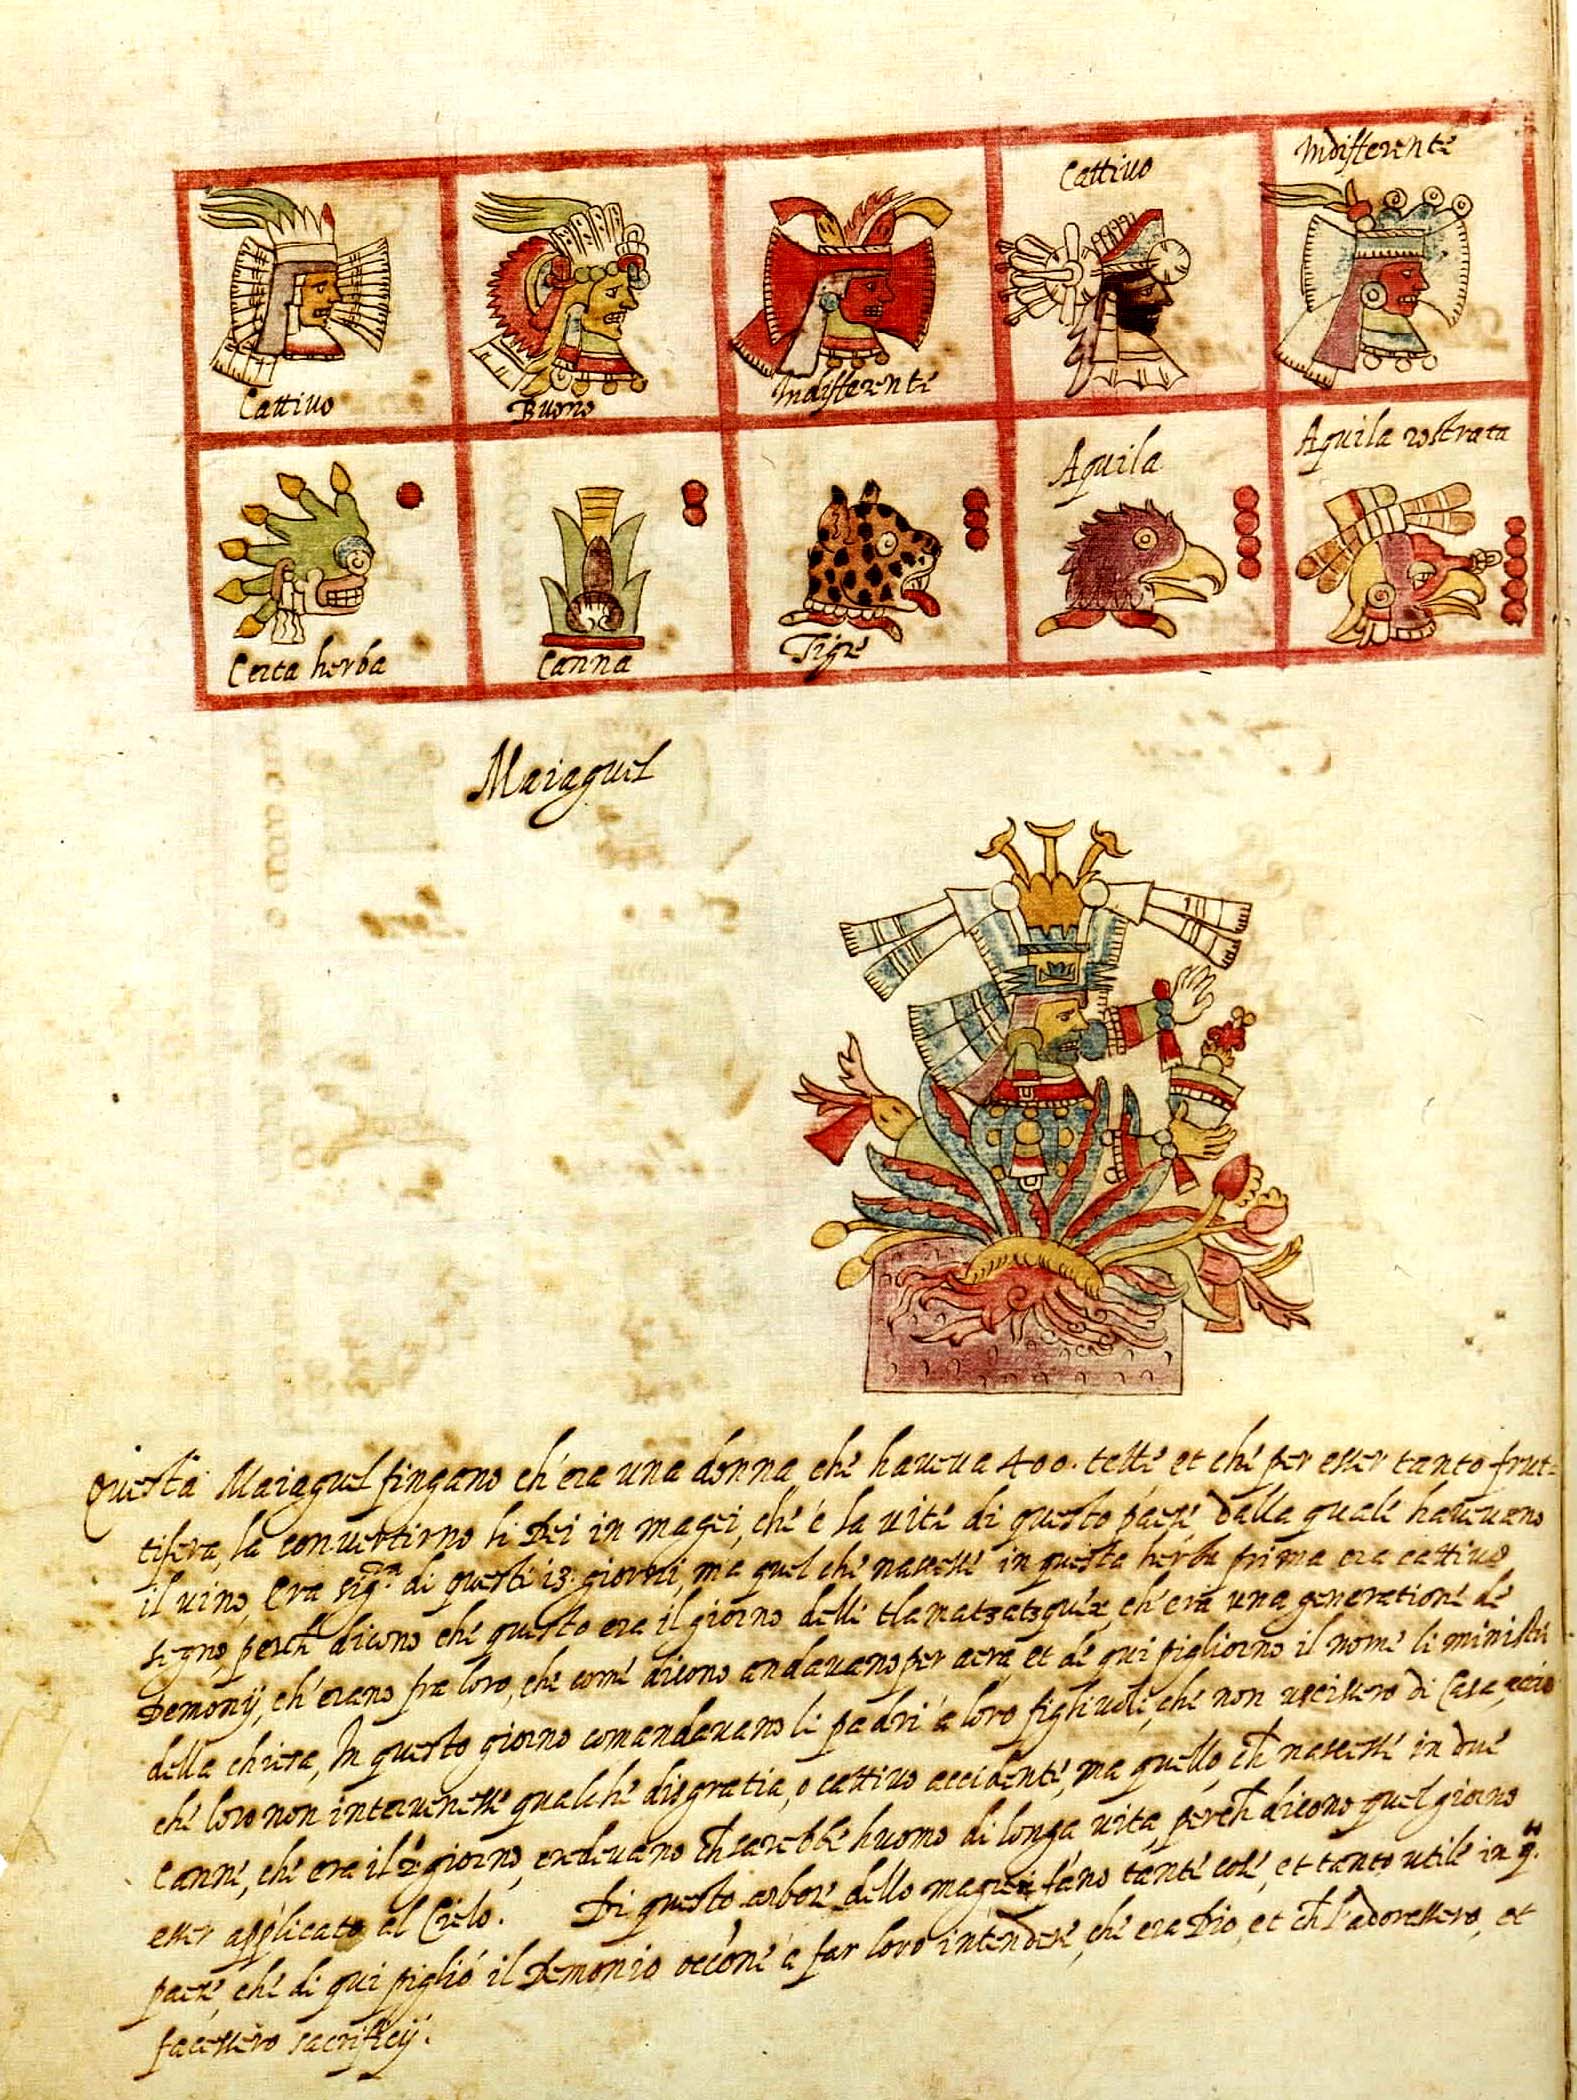 Cattiuo
Indifferente
Cattiuo
Buono
Indifferente
Aquila
Aquila rostrata
Certa herba
Canna
Tigre
Maiaguel
Questa Maiaguel fingano ch'era una donna che haueua 400. tette et che per esser tanto frut=
tifera, la conuertirno li Dei in magei, che è la uite di questo paese, dalla quale haueuano
il uino, Era sig.ra di questi 13. giorni, ma quel che nascesse in questa herba prima era cattiuo
segno, perch dicono che questo era il giorno delle tlamatzatzguex, ch'era una generatione de
Demonij, ch'erano fra loro, che come dicono andauano per aera, et de qui pigliorno il nome li ministri
della chiesa, In questo giorno comandauano li padri a loro figliuoli, che non uscissero di Casa, accio
che loro non interuenesse qualche disgratia, o cattiuo accidente, ma quello, ch nascesse in due
Canne, che era il 2º giorno, credeuano ch sarebbe huomo di longa uita, perch dicono quel giorno
esser applicato al Cielo. Di questo arbore dello maguei fano tante cose, et tanto utile in q.
paese, che di qui pigliò il Demonio occone a far loro intendere, che era Dio, et ch l'adorassero, et
facessero sacrificij.